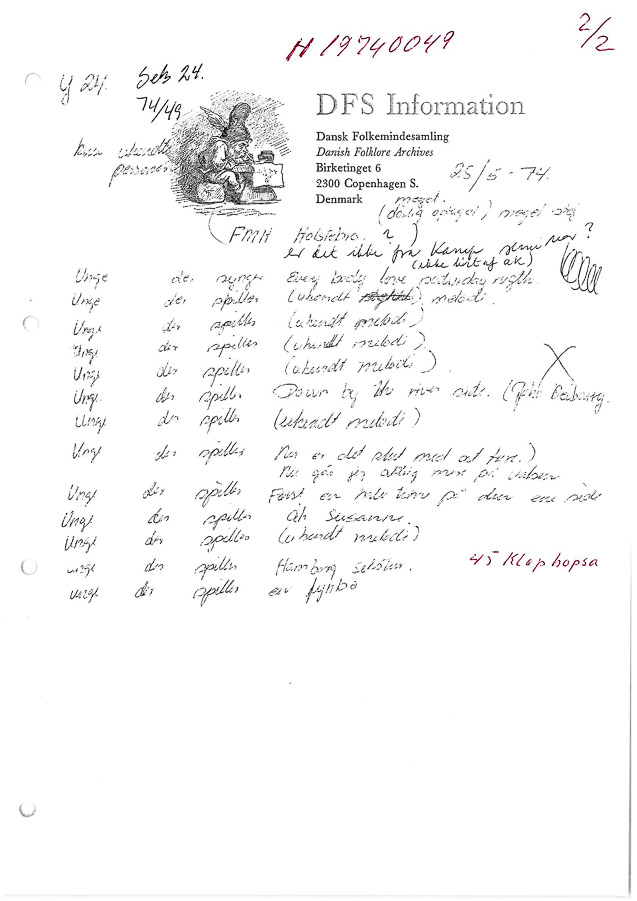 H 19740049
2/2
y 24. Seb 24.
74/49
kun ukendte
personer
DFS Information
Dansk Folkemindesamling
Danish Folklore Archives
Birketinget 6
2300 Copenhagen S.
Denmark
25/5 - 74.
meget.
(dårlig optaget) meget støj
FMH Holstebro. ? )
er det ikke fra Kamp ?
(ikke list af ak)
Unge der synger Every body love saturday nigth.
Unge der spiller (ukendt melodi.
Unge der spiller (ukendt melodi)
Unge der spiller (ukendt melodi).
Unge der spiller (ukendt melodi)
Unge der spiller Down by the river side. (John
Unge der spiller (ukendt melodi)
Unge der spiller Nu er det slut med at ture.)
Nu går jeg aldrig mere på
Unge der spiller Først en hele time på den ene side
Unge der spiller Oh Susanne.
Unge der spiller (ukendt melodi)
unge der spiller Hamborg
45 Klaphopsa
unge der spiller en fynbo